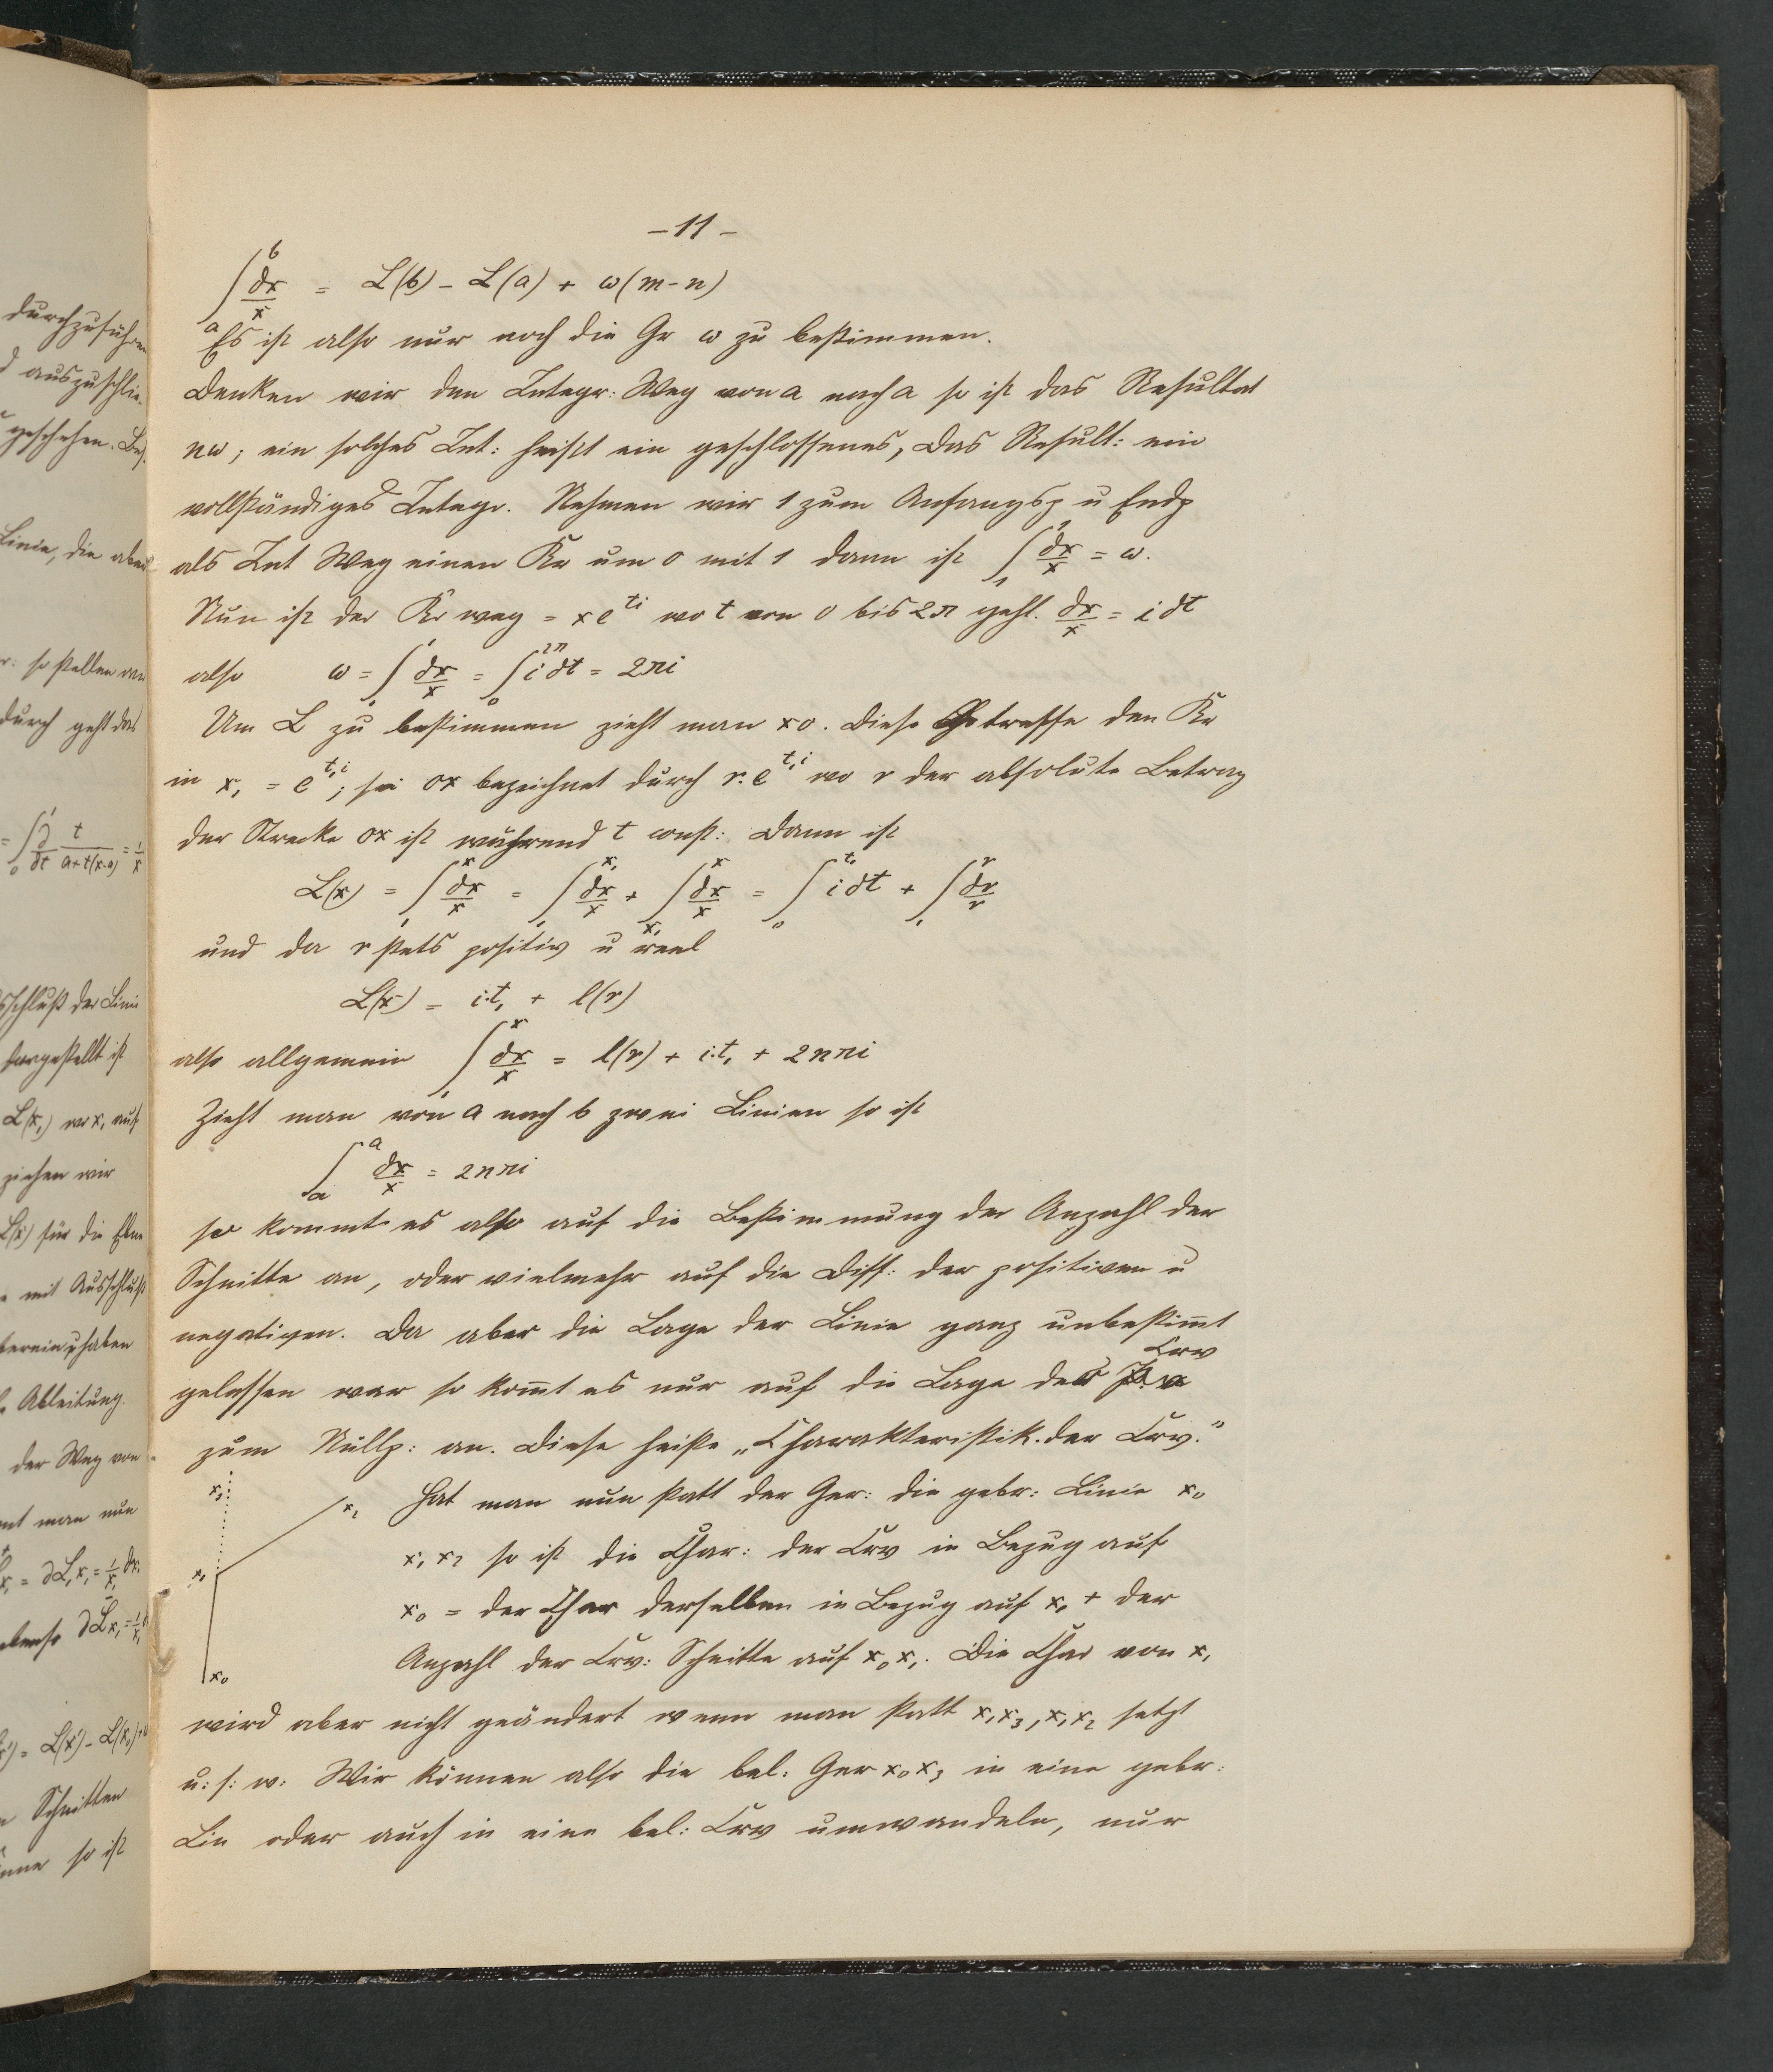 – 11 –
∫_a^b dx/x = L(b) – L(a) + ω(m-n)
Es ist also nur noch die Gr ω zu bestimmen.
Denken wir den Integr: Weg von a nach a so ist das Resultat
nω; ein solches Int: heißt ein geschlossenes, das Result: ein
vollständiges Integr. Nehmen wir 1 zum Anfangsp u Endp
als Int Weg einen Kr um 0 mit 1 dann ist ∫_1^1 dx/x = ω.
Nun ist der Kr weg = x e^{ti} wo t von 0 bis 2π geht. dx/x = i dt
also ω = ∫_1^1 dx/x = ∫_0^{2π} i dt = 2πi
Um L zu bestimmen zieht man x0. Diese treffe den Kr
in x₁ = e^{t₁i}; sei 0x bezeichnet durch r.e^{t₁i} wo r der absolute Betrag
der Strecke 0x ist während t const: Dann ist
L(x) = ∫_1^x dx/x = ∫_1^{x₁} dx/x + ∫_{x₁}^x dx/x = ∫_0^{t₁} i dt + ∫_1^r dr/r
und da r stets positiv u reel
L(x) = i.t₁ + l(r)
also allgemein ∫_1^x dx/x = l(r) + i.t₁ + 2nπi
Zieht man von a nach b zwei Linien so ist
∫_a^a dx/x = 2nπi
so kommt es also auf die Bestimmung der Anzahl der
Schnitte an, oder vielmehr auf die Diff: der positiven u
negativen. Da aber die Lage der Linie ganz unbestim̅t
gelassen war so kom̅t es nur auf die Lage der Crv
zum Nullp: an. Diese heiße „Charakteristik der Crv."
x₃
x₂
x₁
x₀
Hat man nun statt der Ger: die gebr: Linie x₀
x₁ x₂ so ist die Char: der Crv in Bezug auf
x₀ = der Char derselben in Bezug auf x₁ + der
Anzahl der Crv: Schnitte auf x₀x₁. Die Char von x₁
wird aber nicht geändert wenn man statt x₁x₃, x₁x₂ setzt
u: s: w: Wir können also die bel: Ger x₀x₃ in eine gebr:
Lin oder auch in eine bel: Crv umwandeln, nur